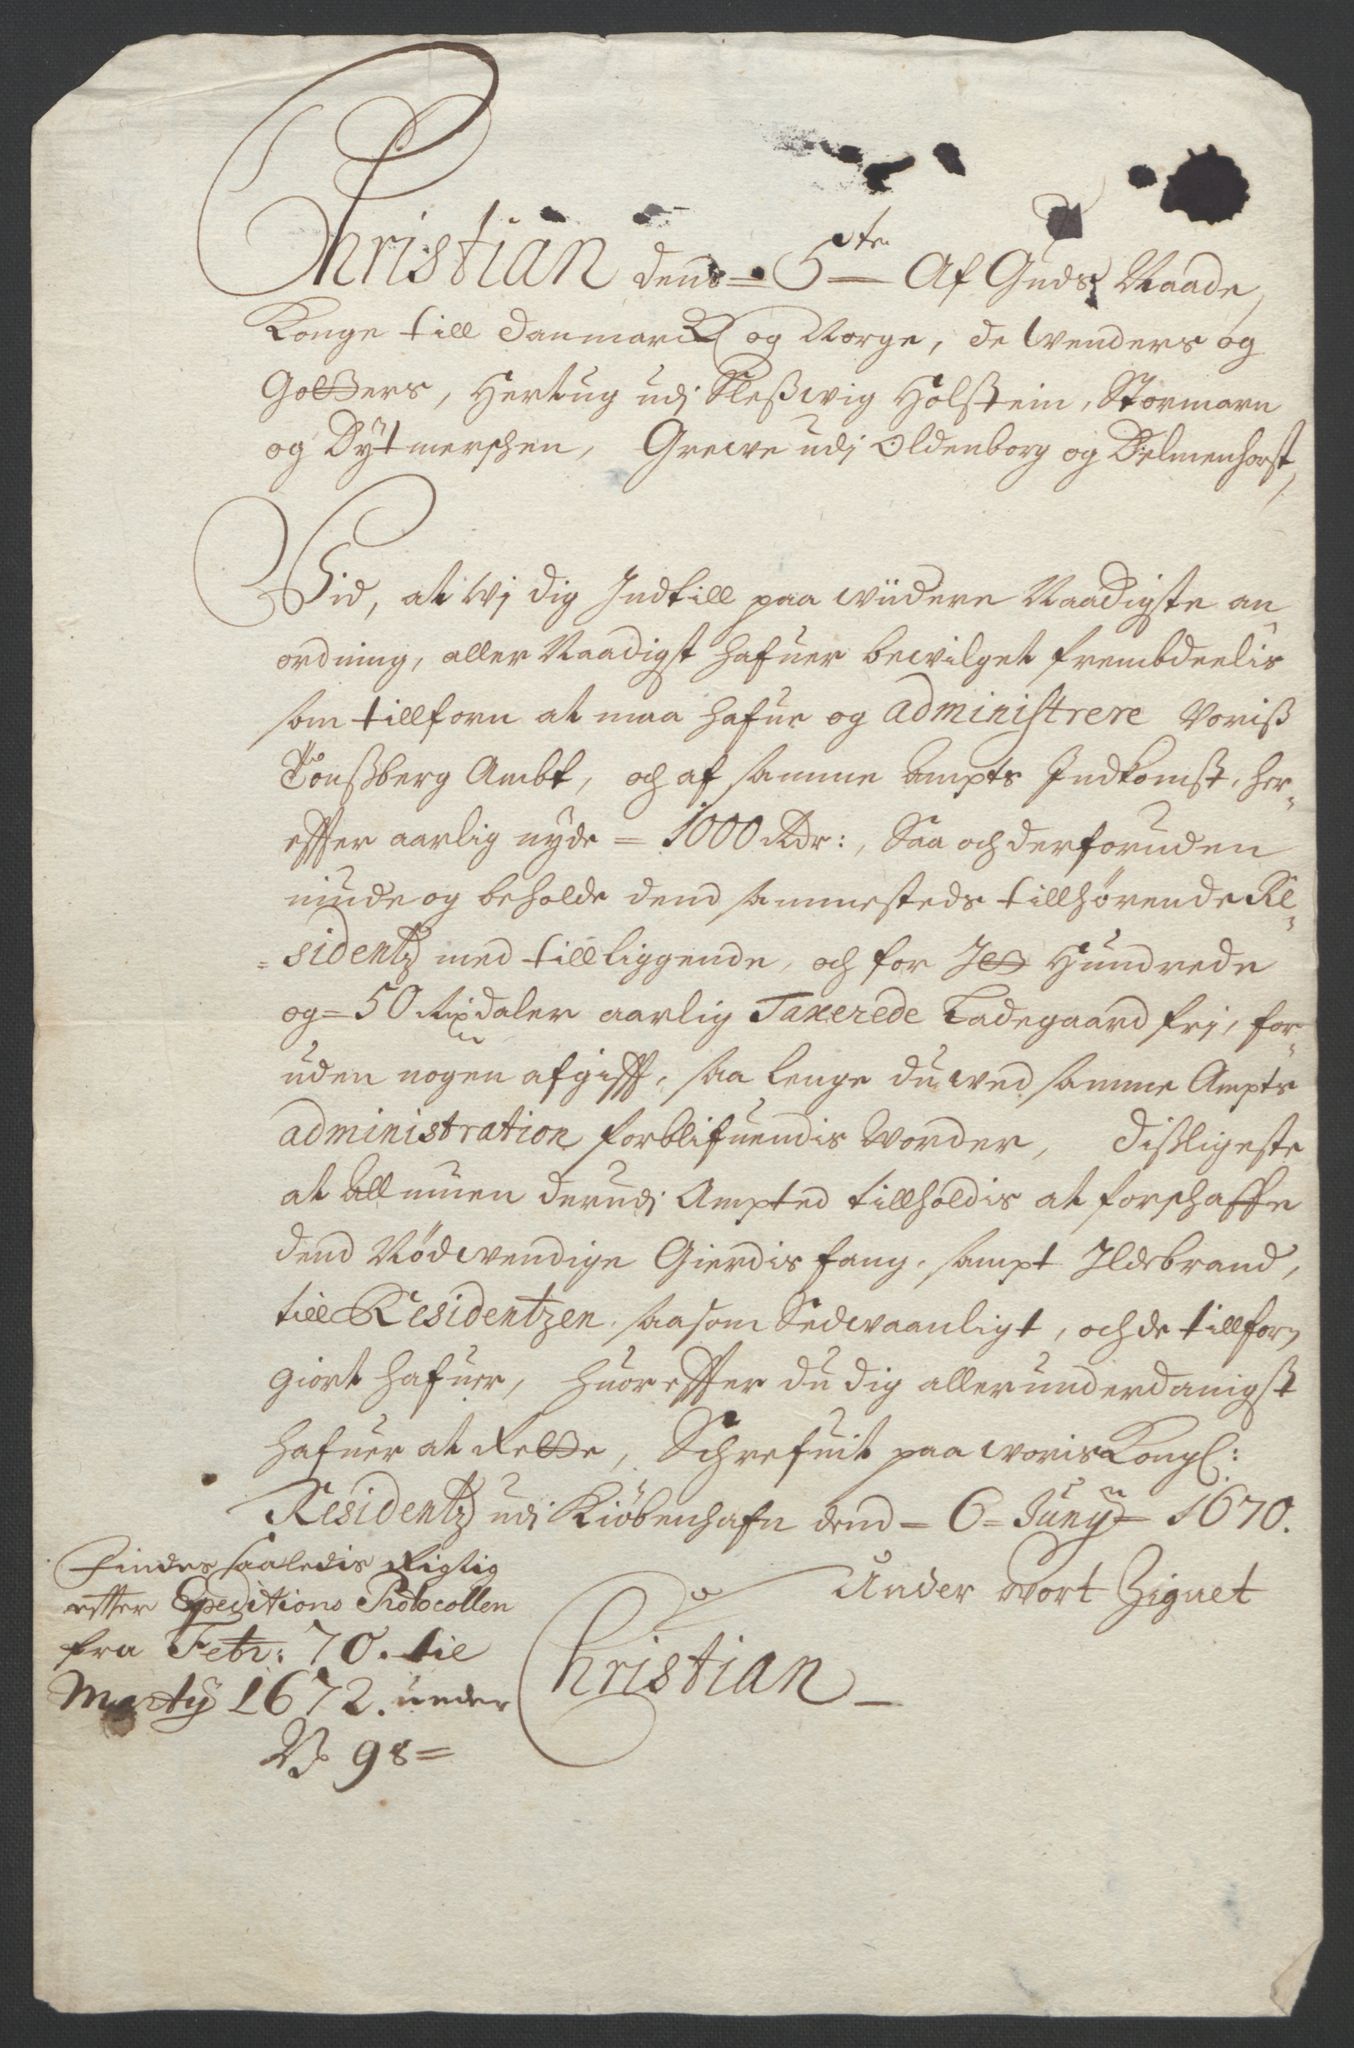 Christian dend = 5te Af Guds Naade,
Konge till Danmarck og Norge, de Wenders og
Gotters, Hertug udj Sleßwig Holstein, Stormarn
og Dytmerschen, Grewe udj Oldenborg og Delmenhorst,
Vid, at Wj dig Indtill paa wiidere Naadigste an
ordning, aller Naadigst hafuer bewilget frembdeelis
som tillforn at maa hafue og administrere Voriß
Tonßberg Ambt, och af samme Ampts Indkomst, her-
effter aarlig nyde = 1000 Rdr:, Saa och derforuden
niude og beholde dend sammesteds tillhørende Re-
=sidentz med tilliggende, och for Jtt Hundrede
og = 50 Rixdaler aarlig Taxerede Ladegaard frj, for-
uden nogen afgifft, saa lenge du wed samme Ampts
administration forblifuendis Worder, Dißligeste
at Allmuen derudj Ampted tillholdis at forschaffe
dend Nødwendige Gierdisfang, sampt Ildebrand,
till Residentzen, saasom Sedwaanligt, och de tillforn
giort hafuer, huoreffter du dig allerunderdanigst
hafuer at Rette, Schrefuit paa woris Kongl:
Residentz udj Kiøbenhafn dend = 6 = Junij = 1670.
Under Wort Zignet
Christian
Findes saaledis Rigtig
effter Expeditions Protocollen
fra Febr: 70. til
Martij 1672. under
No 98 =